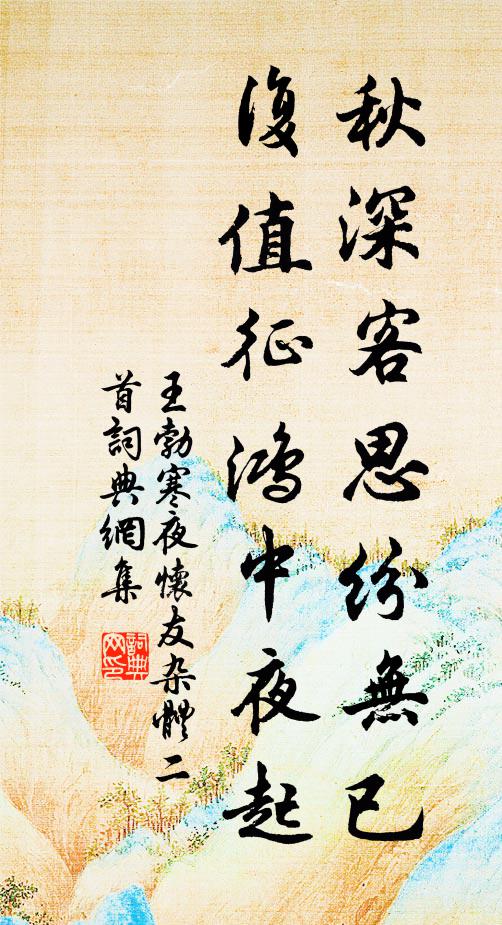 秋深客思纷無已
復值征鸿中夜起
王勃寒夜懷友杂體二
首詞典網集
詞典
网印